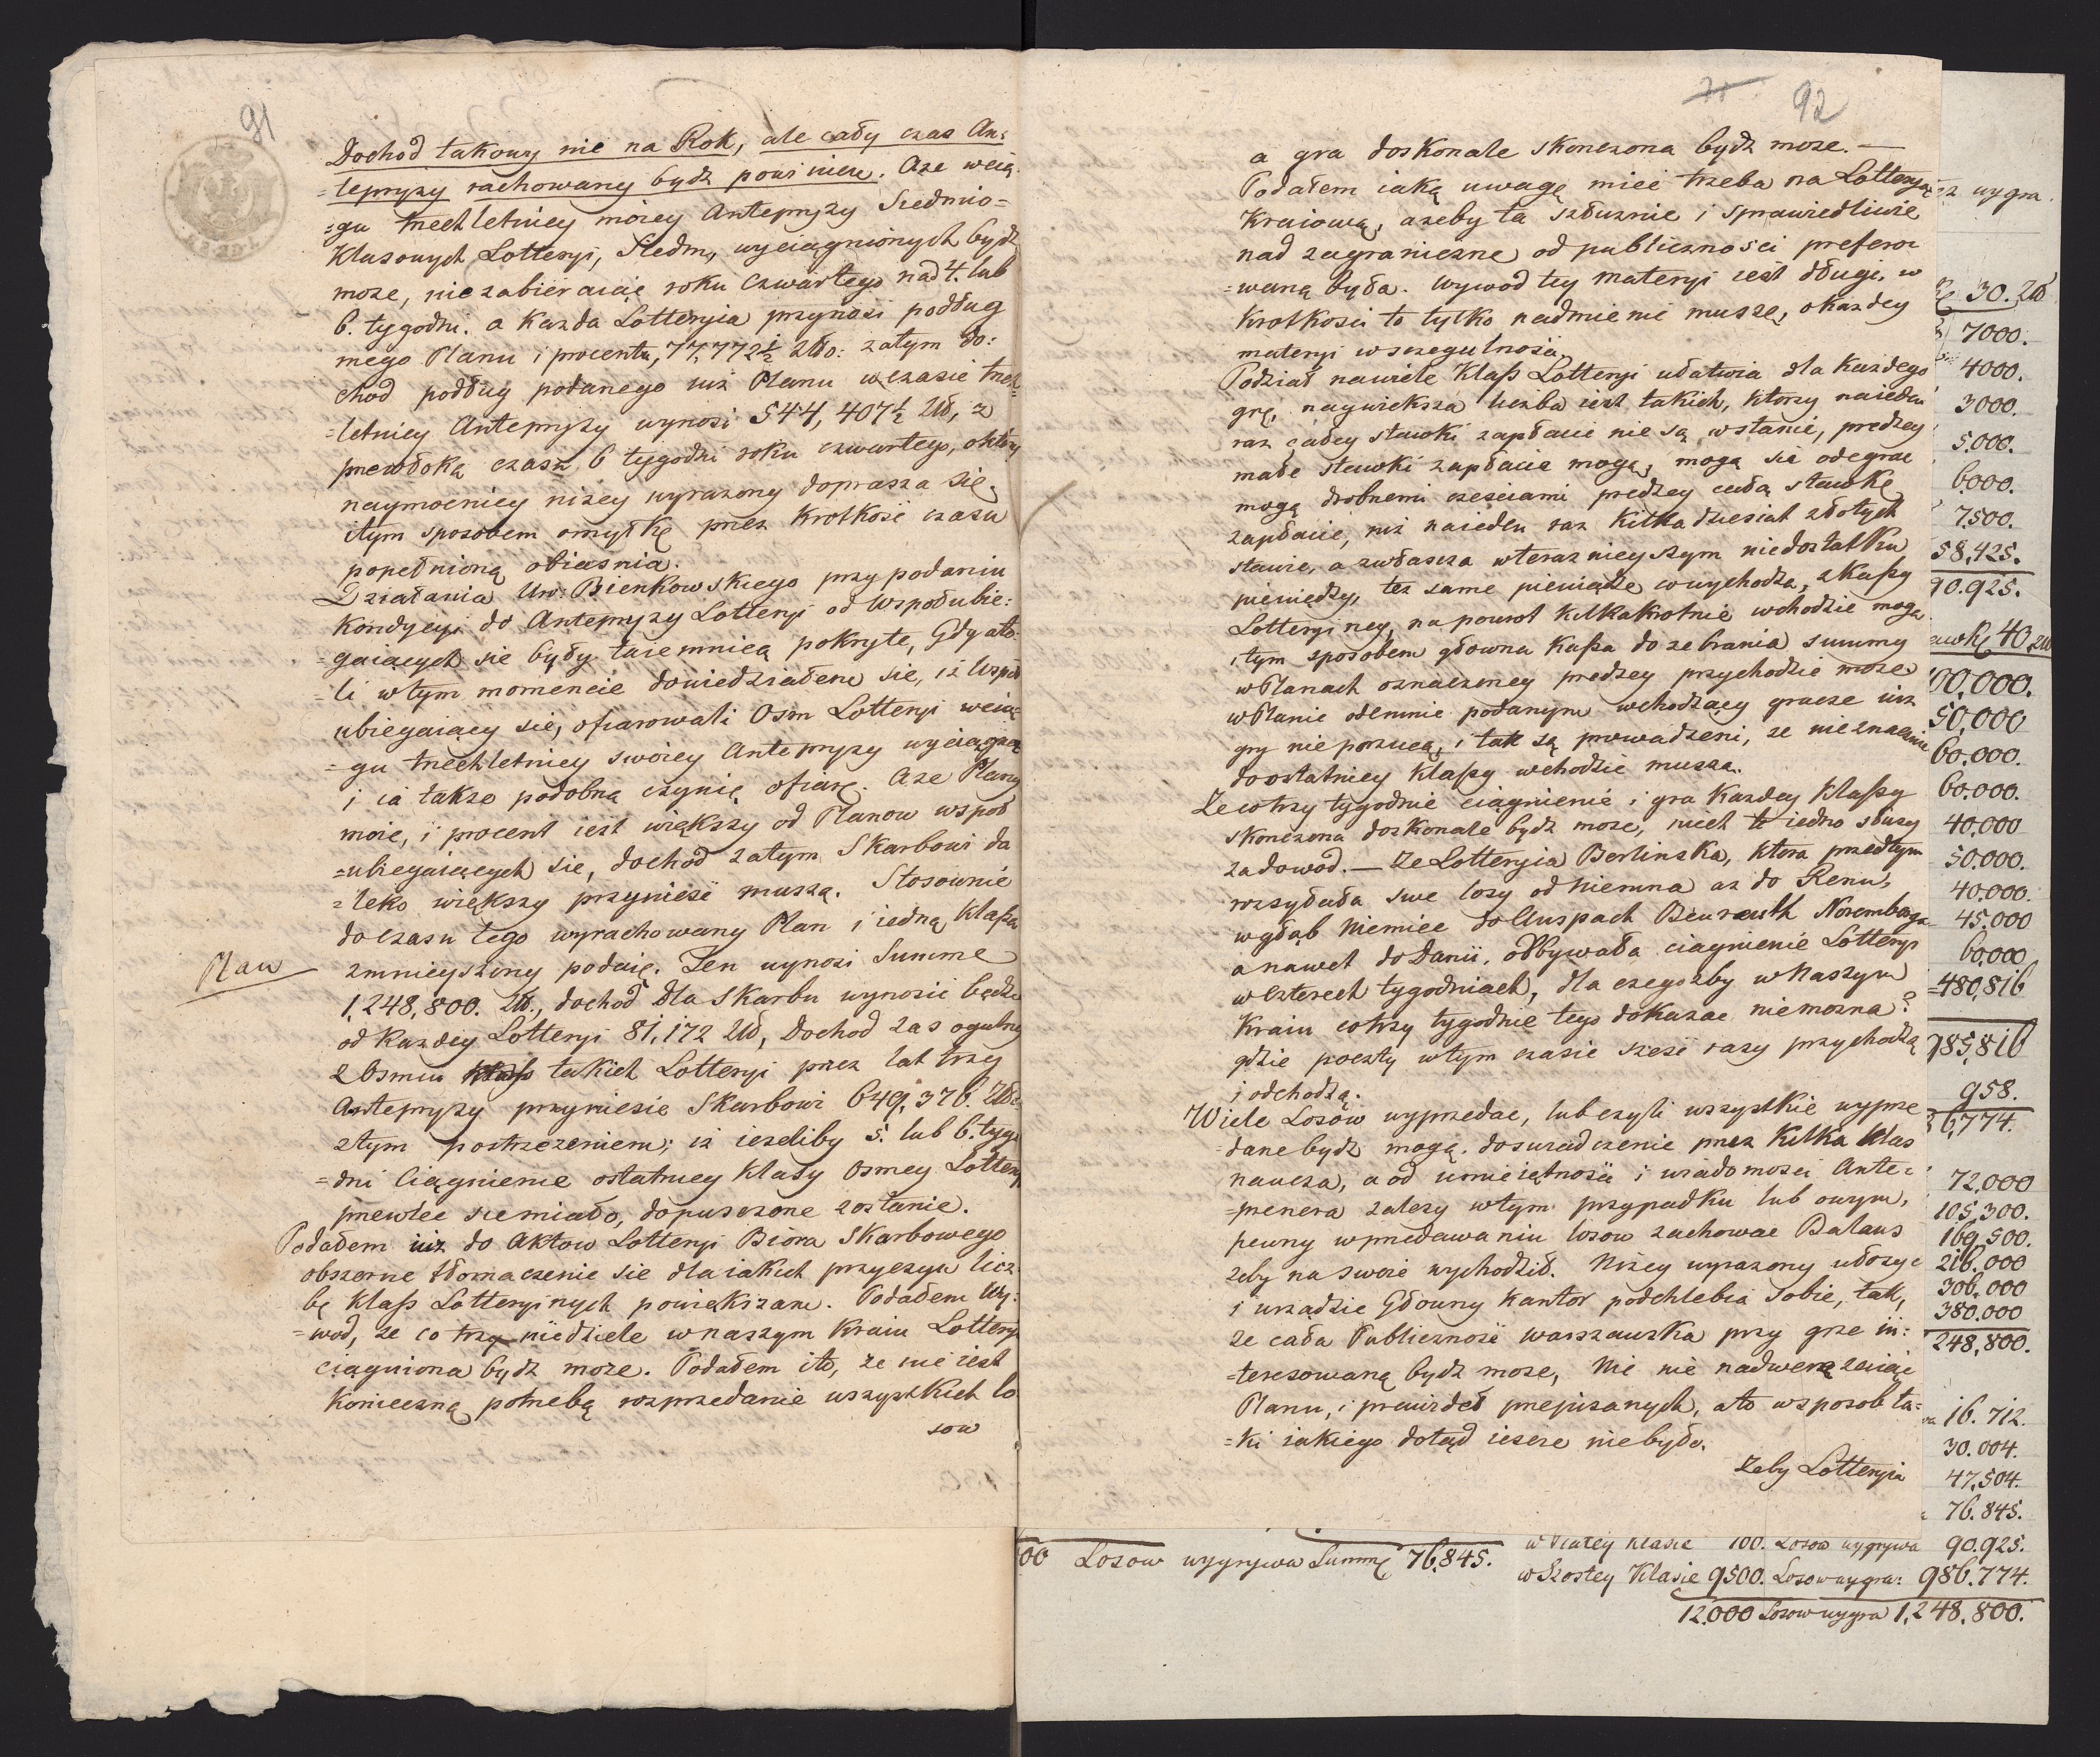 91
Dochod takowy nie na Rok, ale cały czas An:
=tepryzy rachowany bydz powinien. Aze wcią
=gu trzechletniey moiey Antepryzy Siedmio=
Klasowych Lotteryi, Siedm, wyciągnionych bydz
moze, nie zabieraiąc roku czwartego nad 4. lub
6. tygodni. a Kazda Lotterya przynosi podług
mego Planu i procentu, 77,772½ Złło: zatym do:
chod podług podanego iuż Planu w czasie trzech
=letniey Antepryzy wynosi 544,407½ Złł, z
przewłoką czasu 6 tygodni roku czwartego, o który
naymocniey niżey wyrazony doprasza się.
itym sposobem omyłkę przez krotkość czasu
popełnioną obiasnia.
Działania Ur: Bienkowskiego przy podaniu
Kondycyi do Antepryzy Lotteryi od Wspołubie:
=gaiących się były taiemnicą pokryte, Gdy ato-
=li w tym momencie dowiedziałem się, iż Wspoł
ubiegaiący się, ofiarowali Osm Lotteryi wcią=
=gu trzechletniey swoiey Antepryzy wyciągną
i ia takze podobną czynię ofiarę. Aze Plany
moie, i procent iest większy od Planow wspoł
=ubiegaiących się, dochod zatym Skarbowi da
=leko większy przynieść muszą. Stosownie
do czasu tego wyrachowany Plan i iedną Klassą
Plan
zmnieyszony podaię. Ten wynosi Summę
1,248,800. Złł., dochod dla Skarbu wynosić będzie
od Kazdey Lotteryi 81,172 Złł, Dochod zas ogulny
z Osmiu takich Lotteryi przez lat trzy
Antepryzy przyniesie Skarbowi 649,376. Złło
z tym postrzezeniem; iż iezeliby 5. lub 6. tygo
=dni Ciągnienie ostatniey Klasy Osmey Lottery
przewlec sie miało, dopuszczone zostanie.
Podałem iuż do Aktow Lotteryi Biora Skarbowego
obszerne tłomaczenie się dla iakich przyczyn licz:
bę Klass Lotteryinych powiększam. Podałem Wy:
=wod, ze co trzy niedziele w naszym Kraiu Lottery
ciągniona bydz moze. Podałem ito, ze nie iest
Konieczną potrzebą rozprzedanie wszystkich lo
sow
92
a gra doskonale skonczona bydz moze.—
Podałem iaką uwagę mieć trzeba na Lotteryą
Kraiową, azeby ta słusznie i sprawiedliwie
nad zagraniczne od publicznosci prefero
=waną była. wywod tey materyi iest długi. w
Krotkosci to tylko nadmienić muszę, o kazdey
materyi w szczegulnosci.
Podział na wiele Klass Lotteryi ułatwia dla Kazdego
grę, naywiększa liczba iest takich, ktorzy naieden
raz całey stawki zapłacić nie są w stanie, prędzey
małe stawki zapłacić mogą, mogą się odegrac
mogą drobnemi częsciami prędzey całą stawkę
zapłacić, niż naieden raz Kilkadziesiąt złotych
stawić, a zwłaszcza wteraznieyszym niedostatku
pieniędzy, też same pieniądze wychodzą, z Kassy
Lotteryiney na powrot Kilkakrotnie wchodzić mogą
i tym sposobem głowna Kassa do zebrania summy
w Planach oznaczoney prędzey przychodzić może
w Planie odemnie podanym wchodzący gracze iuż
gry nie porzucą, i tak są prowadzeni, ze nieznacznie
do ostatniey Klassy wchodzić muszą.
Ze co trzy tygodnie ciągnienie i gra Kazdey Klassy
skonczona doskonale bydz moze, niech to iedno słuzy
za dowod.— Ze Lotterya Berlinska, ktora przedtym
rozsyłała swe losy od Niemna az do Renu,
w głąb Niemiec do Anspach Beureuth Noremberga
a nawet do Danii. odbywała ciągnienie Lotteryi
w czterech tygodniach, dla czegożby w Naszym
Kraiu co trzy tygodnie tego dokazac nie mozna?
gdzie poczty w tym czasie szesć razy przychodzą
i odchodzą.
Wiele Losow wyprzedac, lub czyli wszystkie wyprze
=dane bydz mogą. doswiadczenie przez Kilka Klas
naucza, a od umieiętnosci i wiadomosci Ante=
=prenera zalezy w tym przypadku lub owym,
pewny w przedawaniu losow zachowac Balans
zeby na swoie wychodził. Niżey wyrazony ułozyc
i urządzic Głowny Kantor podchlebia sobie, tak,
ze cała Publicznosć warszawska przy grze in:
=teresowaną bydz moze, nic nie nadweręzaiąc
Planu, i prawideł przepisanych, a to w sposob ta=
=ki iakiego dotąd ieszcze nie było.
Zeby Lotterya
wygra.
30. Złł
7000.
4000.
3000.
5.000.
6000.
7.500.
58,425.
90.925.
40
00,000.
50,000
60.000.
60.000.
40,000
50.000.
40.000.
45.000
60,000
480,816
985,816
958.
6,774.
72,000
105,300.
169,500.
216.000
306,000
380.000
248,800.
16. 712.
30.004.
47,504.
76.845.
00 Losow wygrywa Summę 76,845.
w Piątey Klasie 100. Losow wygrywa 90.925.
w Szostey Klasie 9500. Losow wygra: 986.774.
12.000 Losow wygra 1,248,800.